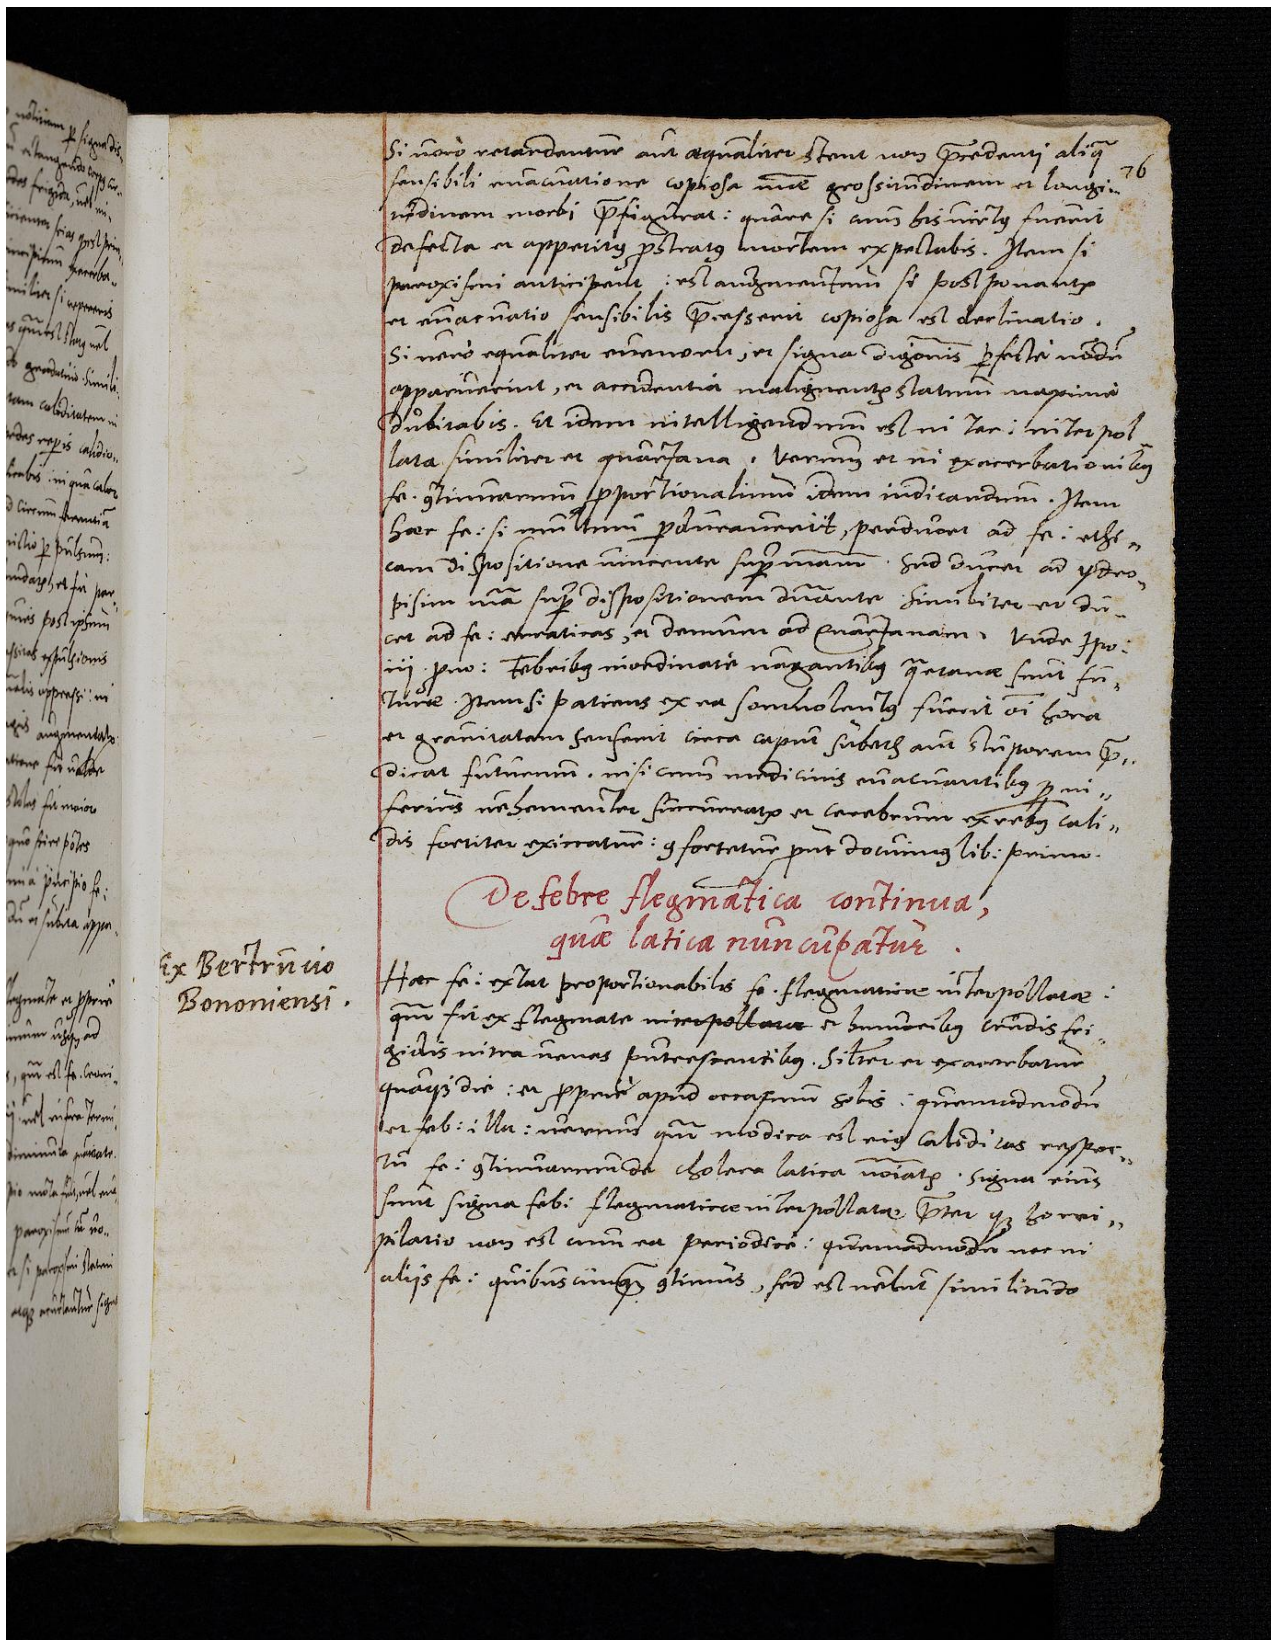 76
Si uero retardentur aut æqualiter stent non p̄cedenti aliq̄
sensibili euacuatione copiosa mãe grossitudinem et longi„
tudinem morbi p̄figurat: quare si cum his uirtꝰ fuerit
defecta et appetitꝰ ꝓstratꝰ mortem expectabis. Item si
paroxismi anticipent: est augmentum si postponantꝝ
et euacuatio sensibilis p̄cesserit copiosa est declinatio.
Si uero equaliter euenerit, et signa digõnis ꝑfectè nõdũ
apparuerint, et accidentia malignentꝝ statum maximè
dubitabis. Et idem intelligendum est in Tec: interpol
lata similiter et quartana. Verum et in exacerbationibꝰ
fe. ꝯtinuarum ꝓportionalium idem iudicandum. Item
hæc fe: si multum ꝑdurauerit, perducet ad fe: ethi„
cam dispositione uincente sup̱ mãam. Sed ducet ad ydro„
pisim mã sup̱ dispositionem dñante. Similiter et du„
cet ad fe: erraticas, et demum ad Quartanam. Vnde Ipo:
iij. pno: Febribꝰ inordinatè uagantibꝰ q̃rtanæ sunt fu„
turæ. Item si patiens ex ea somnolentꝰ fuerit õi hora
et grauitatem senserit circa caput subeth aut stuporem p̄„
dicat futurum. nisi cum medicinis euacuantibꝰ ꝑ in„
ferius uehementer succurratꝝ et cerebrum ex rebꝰ cali„
dis fortiter exiccatur: ꝯfortetur ꝓut docuimꝰ lib: primo.
De febre flegmãtica continua,
quæ latica nuncupatur.
Ex Bertrucio
Bononiensi.
Hæc fe: extat proportionabilis fe. flegmaticæ interpollatæ:
qm̃ fit ex flegmate interpollata et humoribꝰ crudis fri„
gidis intra uenas putrescentibꝰ. Silr̃ter et exacerbatur
quaq̨ die: et ꝓpriè apud occasum solis: quemadmodũ
et feb: illa: uerum qm̃ modica est eiꝰ caliditas respec„
tu fe: ꝯtinuarum de cholera latica nõiatꝝ. Signa eius
sunt signa feb: flegmaticæ interpollatæ p̄ter q̨ horri„
pilatio non est cum ea periodicè: quemadmodũ nec in
alijs fe: quibuscunq̨ ꝯtinuis, sed est uelut similitudo